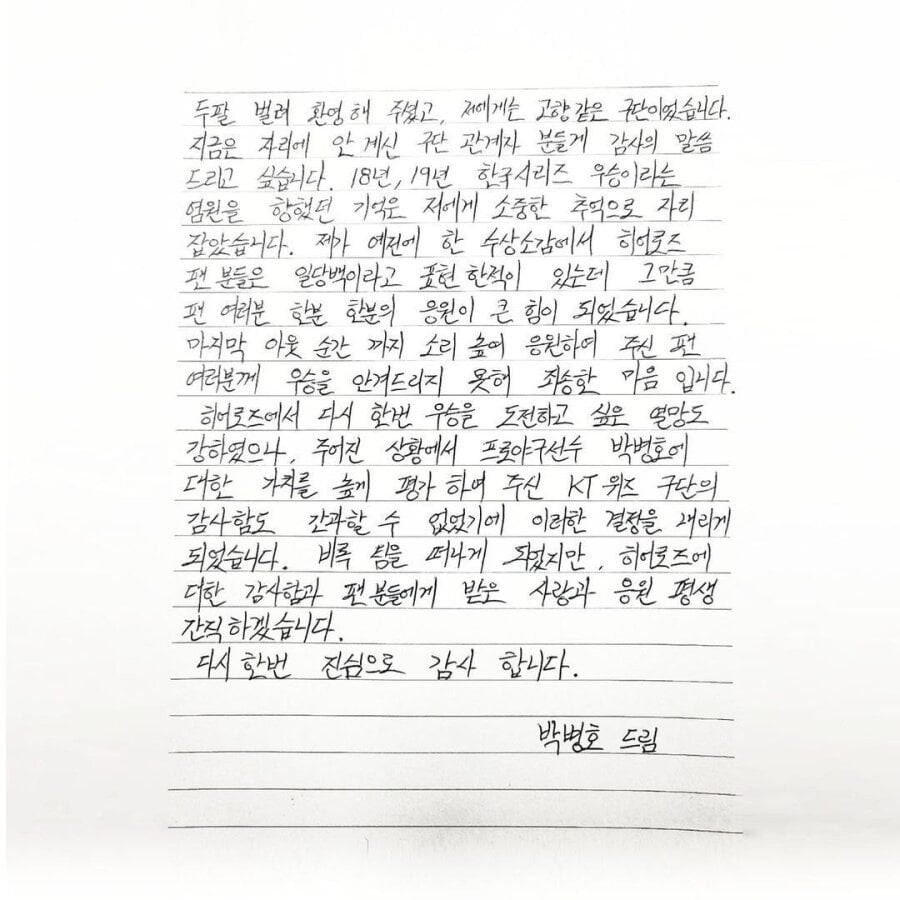 두팔 벌려 환영해 주셨고, 저에게는 고향같은 구단이었습니다.
지금은 자리에 안 계신 구단 관계자 분들게 감사의 말씀
드리고 싶습니다. 18년, 19년 한국시리즈 우승이라는
염원을 향했던 기억은 저에게 소중한 추억으로 자리
잡았습니다. 제가 예전에 한 수상소감에서 히어로즈
팬 분들은 일당백이라고 표현한적이 있는데 그만큼
팬 여러분 한분 한분의 응원이 큰 힘이 되었습니다.
마지막 아웃 순간 까지 소리 높여 응원하여 주신 팬
여러분께 우승을 안겨드리지 못해 죄송한 마음 입니다.
히어로즈에서 다시 한번 우승을 도전하고 싶은 열망도
강하였으나, 주어진 상황에서 프로야구선수 박병호에
대한 가치를 높게 평가 하여 주신 KT 위즈 구단의
감사함도 간과할 수 없었기에 이러한 결정을 내리게
되었습니다. 비록 팀을 떠나게 되었지만, 히어로즈에
대한 감사함과 팬분들에게 받은 사랑과 응원 평생
간직하겠습니다.
다시한번 진심으로 감사 합니다.
박병호 드림